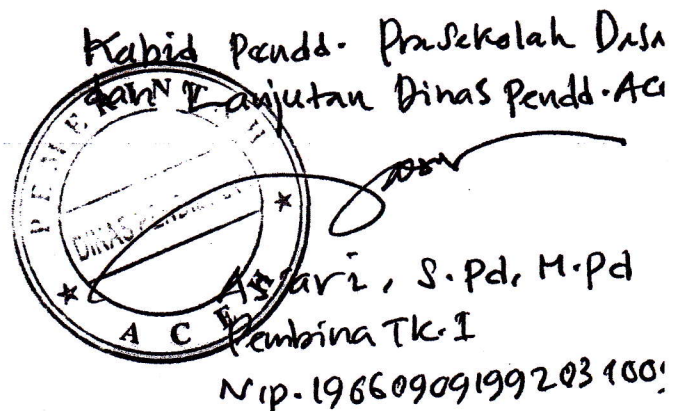 Kabid Pendd. Prasekolah Dasa
dan Lanjutan Dinas Pendd. Ac
PEMERINTAH
DINAS PENDIDIKAN
ACEH
S.Pd, M.Pd
Pembina TK.I
Nip. 19660909199203100